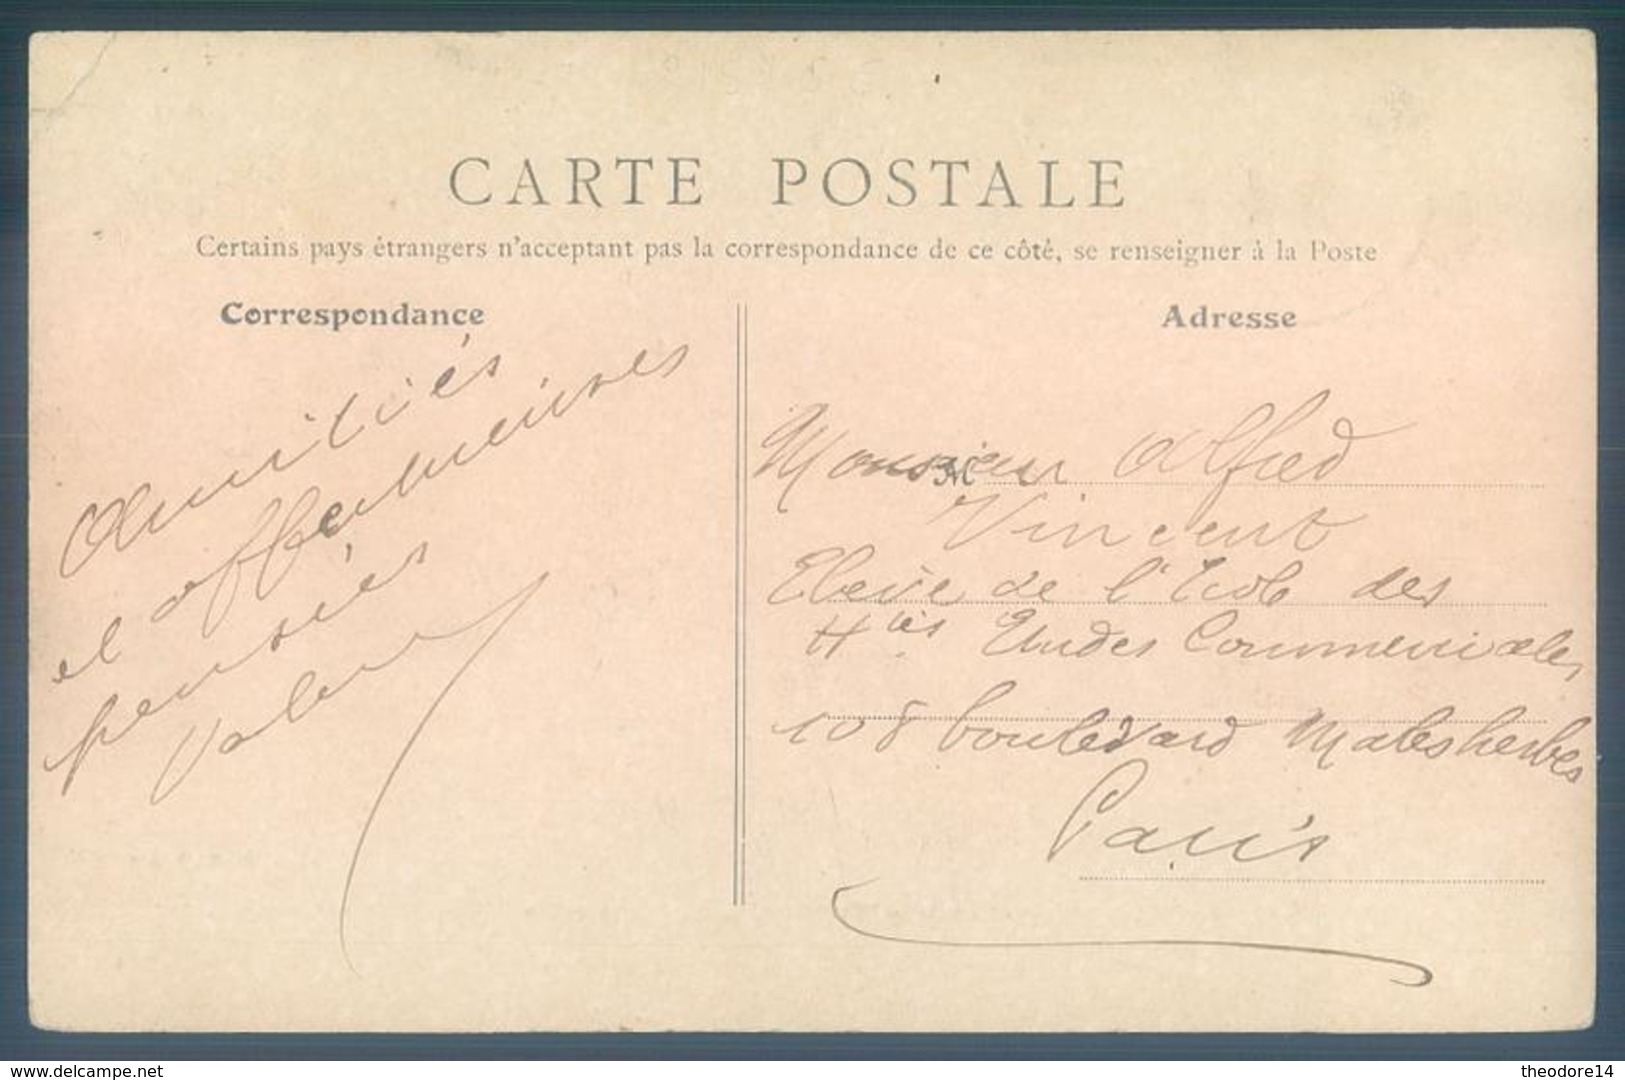 CARTE POSTALE
Certains pays étrangers n'acceptant pas la correspondance de ce côté, se renseigner à la Poste
Correspondance
Amitiés
et affectueuses
pensées
Adresse
M
Monsieur Alfred
Vincent
Elève de l'Ecole des
Htes Etudes Commerciales
108 boulevard Malesherbes
Paris
www.delcampe.net
theodore14